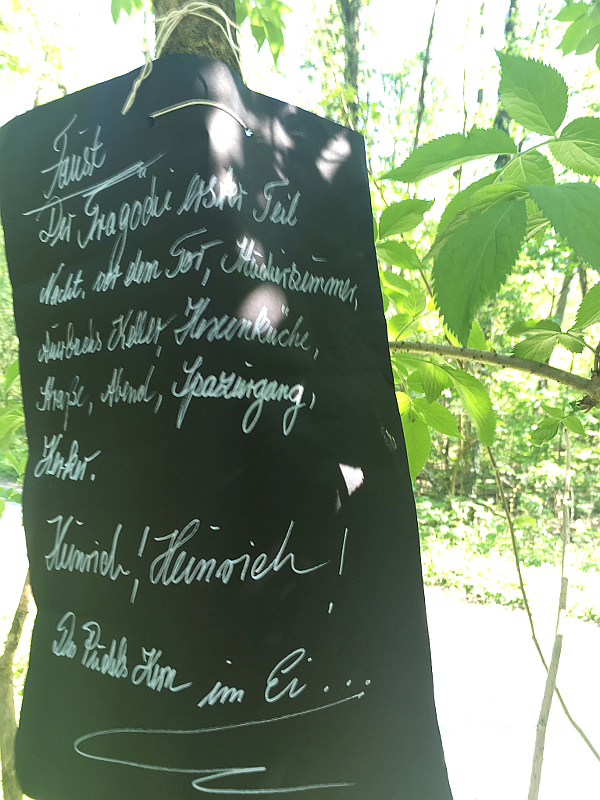 Faust
Der Tragödie erster Teil
Nacht, vor dem Tor, Studierzimmer,
Auerbachs Keller, Hexenküche,
Straße, Abend, Spaziergang,
Kerker.
Heinrich! Heinrich!
Des Pudels Kern im Ei...